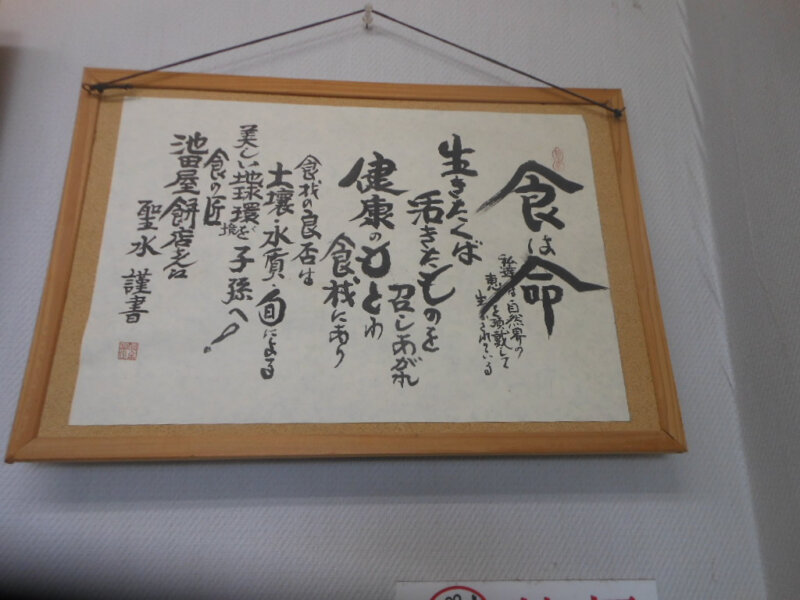 食は命
私達は自然界の
恵みを頂戴して
生かされている
生きたくば
活きたものを
召しあがれ
健康のもとは
食材にあり
食材の良否は
土壌・水質・旬による
美しい地球環境を子孫へ!
食の匠
池田屋餅店
聖水 謹書